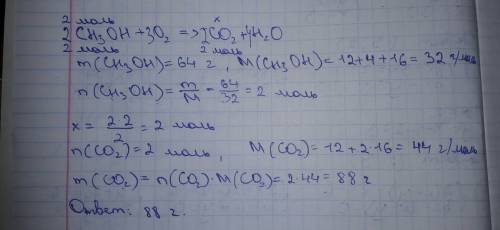 2 моль x
2CH₃OH + 3O₂ => 2CO₂ + 4H₂O
2 моль 2 моль
m(CH₃OH) = 64 г, M(CH₃OH) = 12+4+16 = 32 г/моль
n(CH₃OH) = m/M = 64/32 = 2 моль
x = 2·2/2 = 2 моль
n(CO₂) = 2 моль, M(CO₂) = 12+2·16 = 44 г/моль
m(CO₂) = n(CO₂)·M(CO₂) = 2·44 = 88 г
Ответ: 88 г.